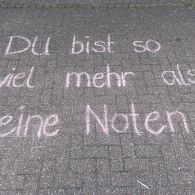 DU bist so
viel mehr als
eine Noten